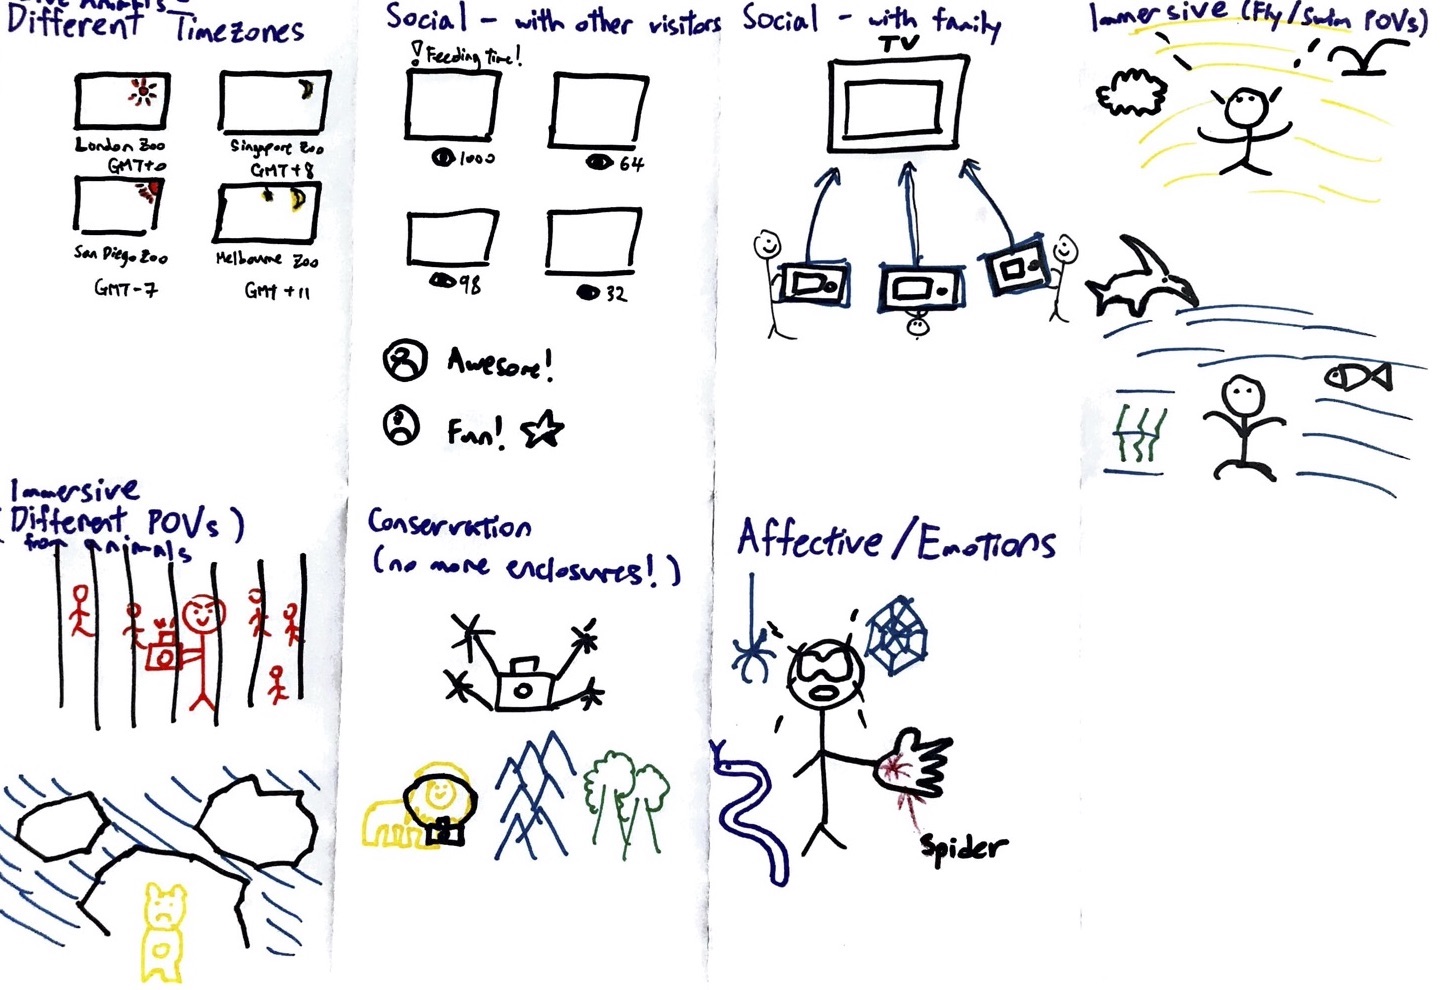 Live Animals -
Different Timezones
London Zoo
GMT+0
Singapore Zoo
GMT+8
San Diego Zoo
GMT-7
Melbourne Zoo
GMT +11
Social - with other visitors
! Feeding time!
1000
64
98
32
Awesome!
Fun!
Social - with family
TV
Immersive (Fly/Swim POVs)
Immersive
(Different POVs)
from animals
Conservation
(no more enclosures!)
Affective/Emotions
Spider